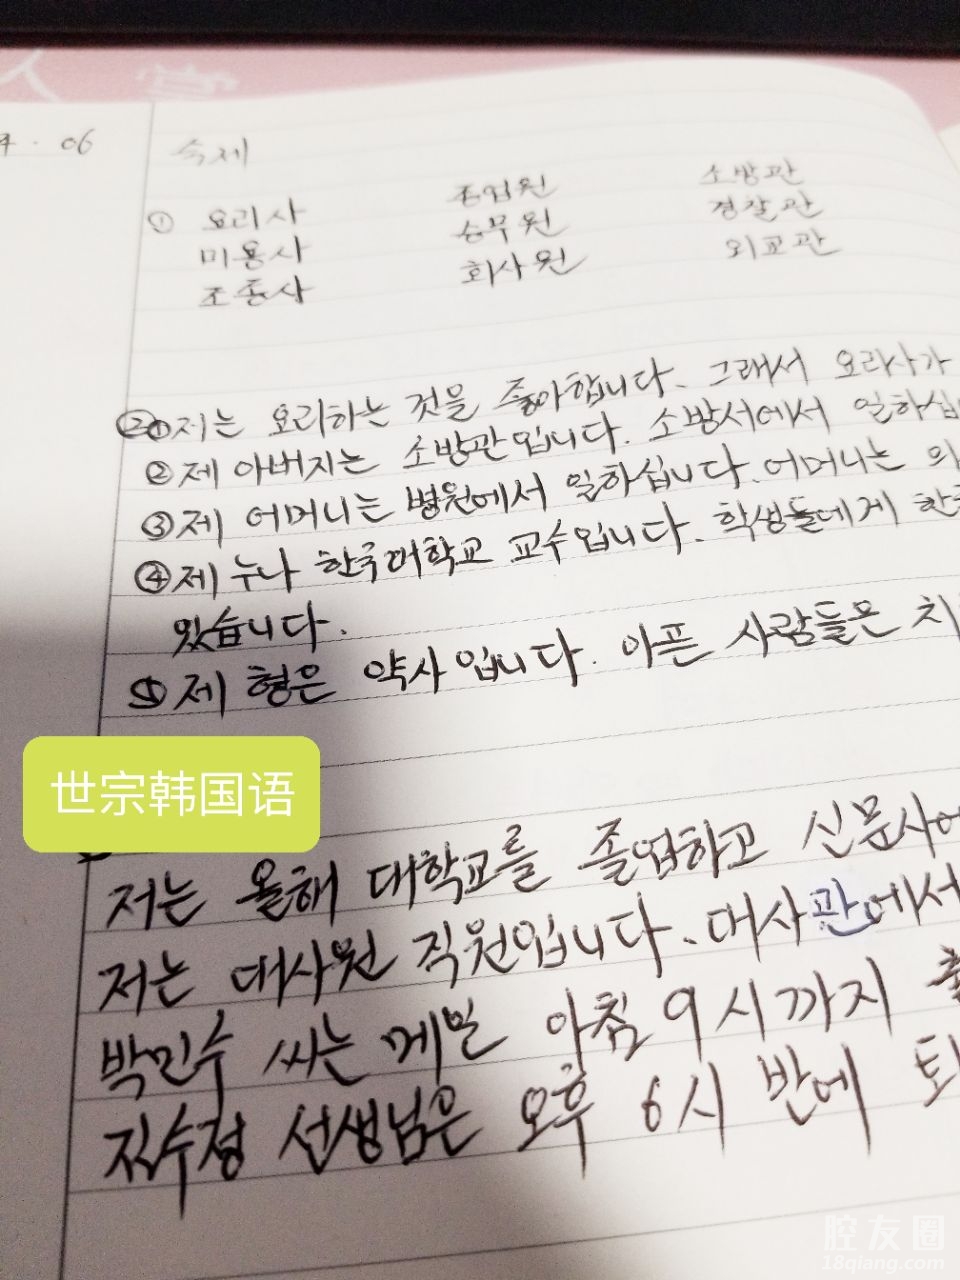 06
숙제
① 요리사 종업원 소방관
미용사 승무원 경찰관
조종사 회사원 외교관
②① 저는 요리하는 것을 좋아합니다. 그래서 요리사가
② 제 아버지는 소방관입니다. 소방서에서 일하십
③ 제 어머니는 병원에서 일하십니다. 어머니는 의
④ 제 누나 한국대학교 교수입니다. 학생들에게 한국
있습니다.
⑤ 제 형은 약사입니다. 아픈 사람들은 치
世宗韩国语
저는 올해 대학교를 졸업하고 신문사에
저는 대사원 직원입니다. 대사관에서
박민수 씨는 메일 아침 9시까지 출
진수정 선생님은 오후 6시 반에 퇴
腔友圈
18qiang.com